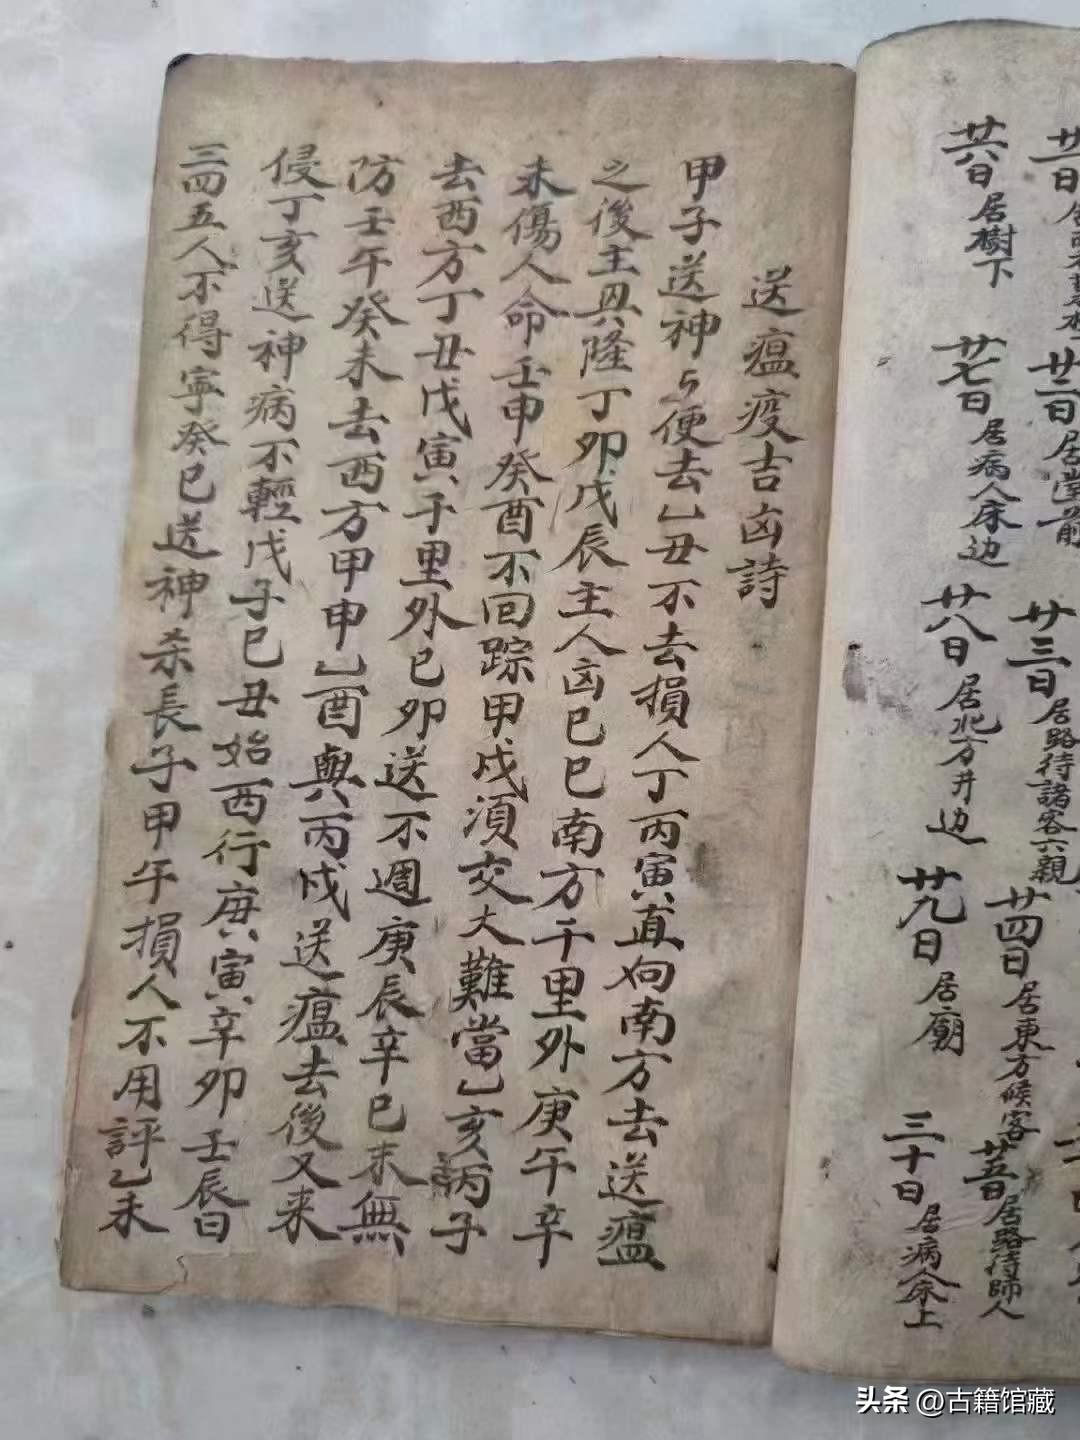 廿一日
廿二日居堂前
廿三日居路待諸客六親
廿四日居東方候客
廿五日居路待師人
廿六日居樹下
廿七日居病人床边
廿八日居北方井边
廿九日居廟
三十日居病人床上
送瘟疫吉凶詩
甲子送神与便去乙丑不去損人丁丙寅直向南方去送瘟
之後主興隆丁卯戊辰主人凶己巳南方千里外庚午辛
未傷人命壬申癸酉不回踪甲戌須交大難當乙亥丙子
去西方丁丑戊寅千里外己卯送不週庚辰辛巳未無
防壬午癸未去西方甲申乙酉與丙戌送瘟去後又来
侵丁亥送神病不輕戊子己丑始西行庚寅辛卯壬辰日
三四五人不得寧癸巳送神杀長子甲午損人不用評乙未
头条 @古籍馆藏